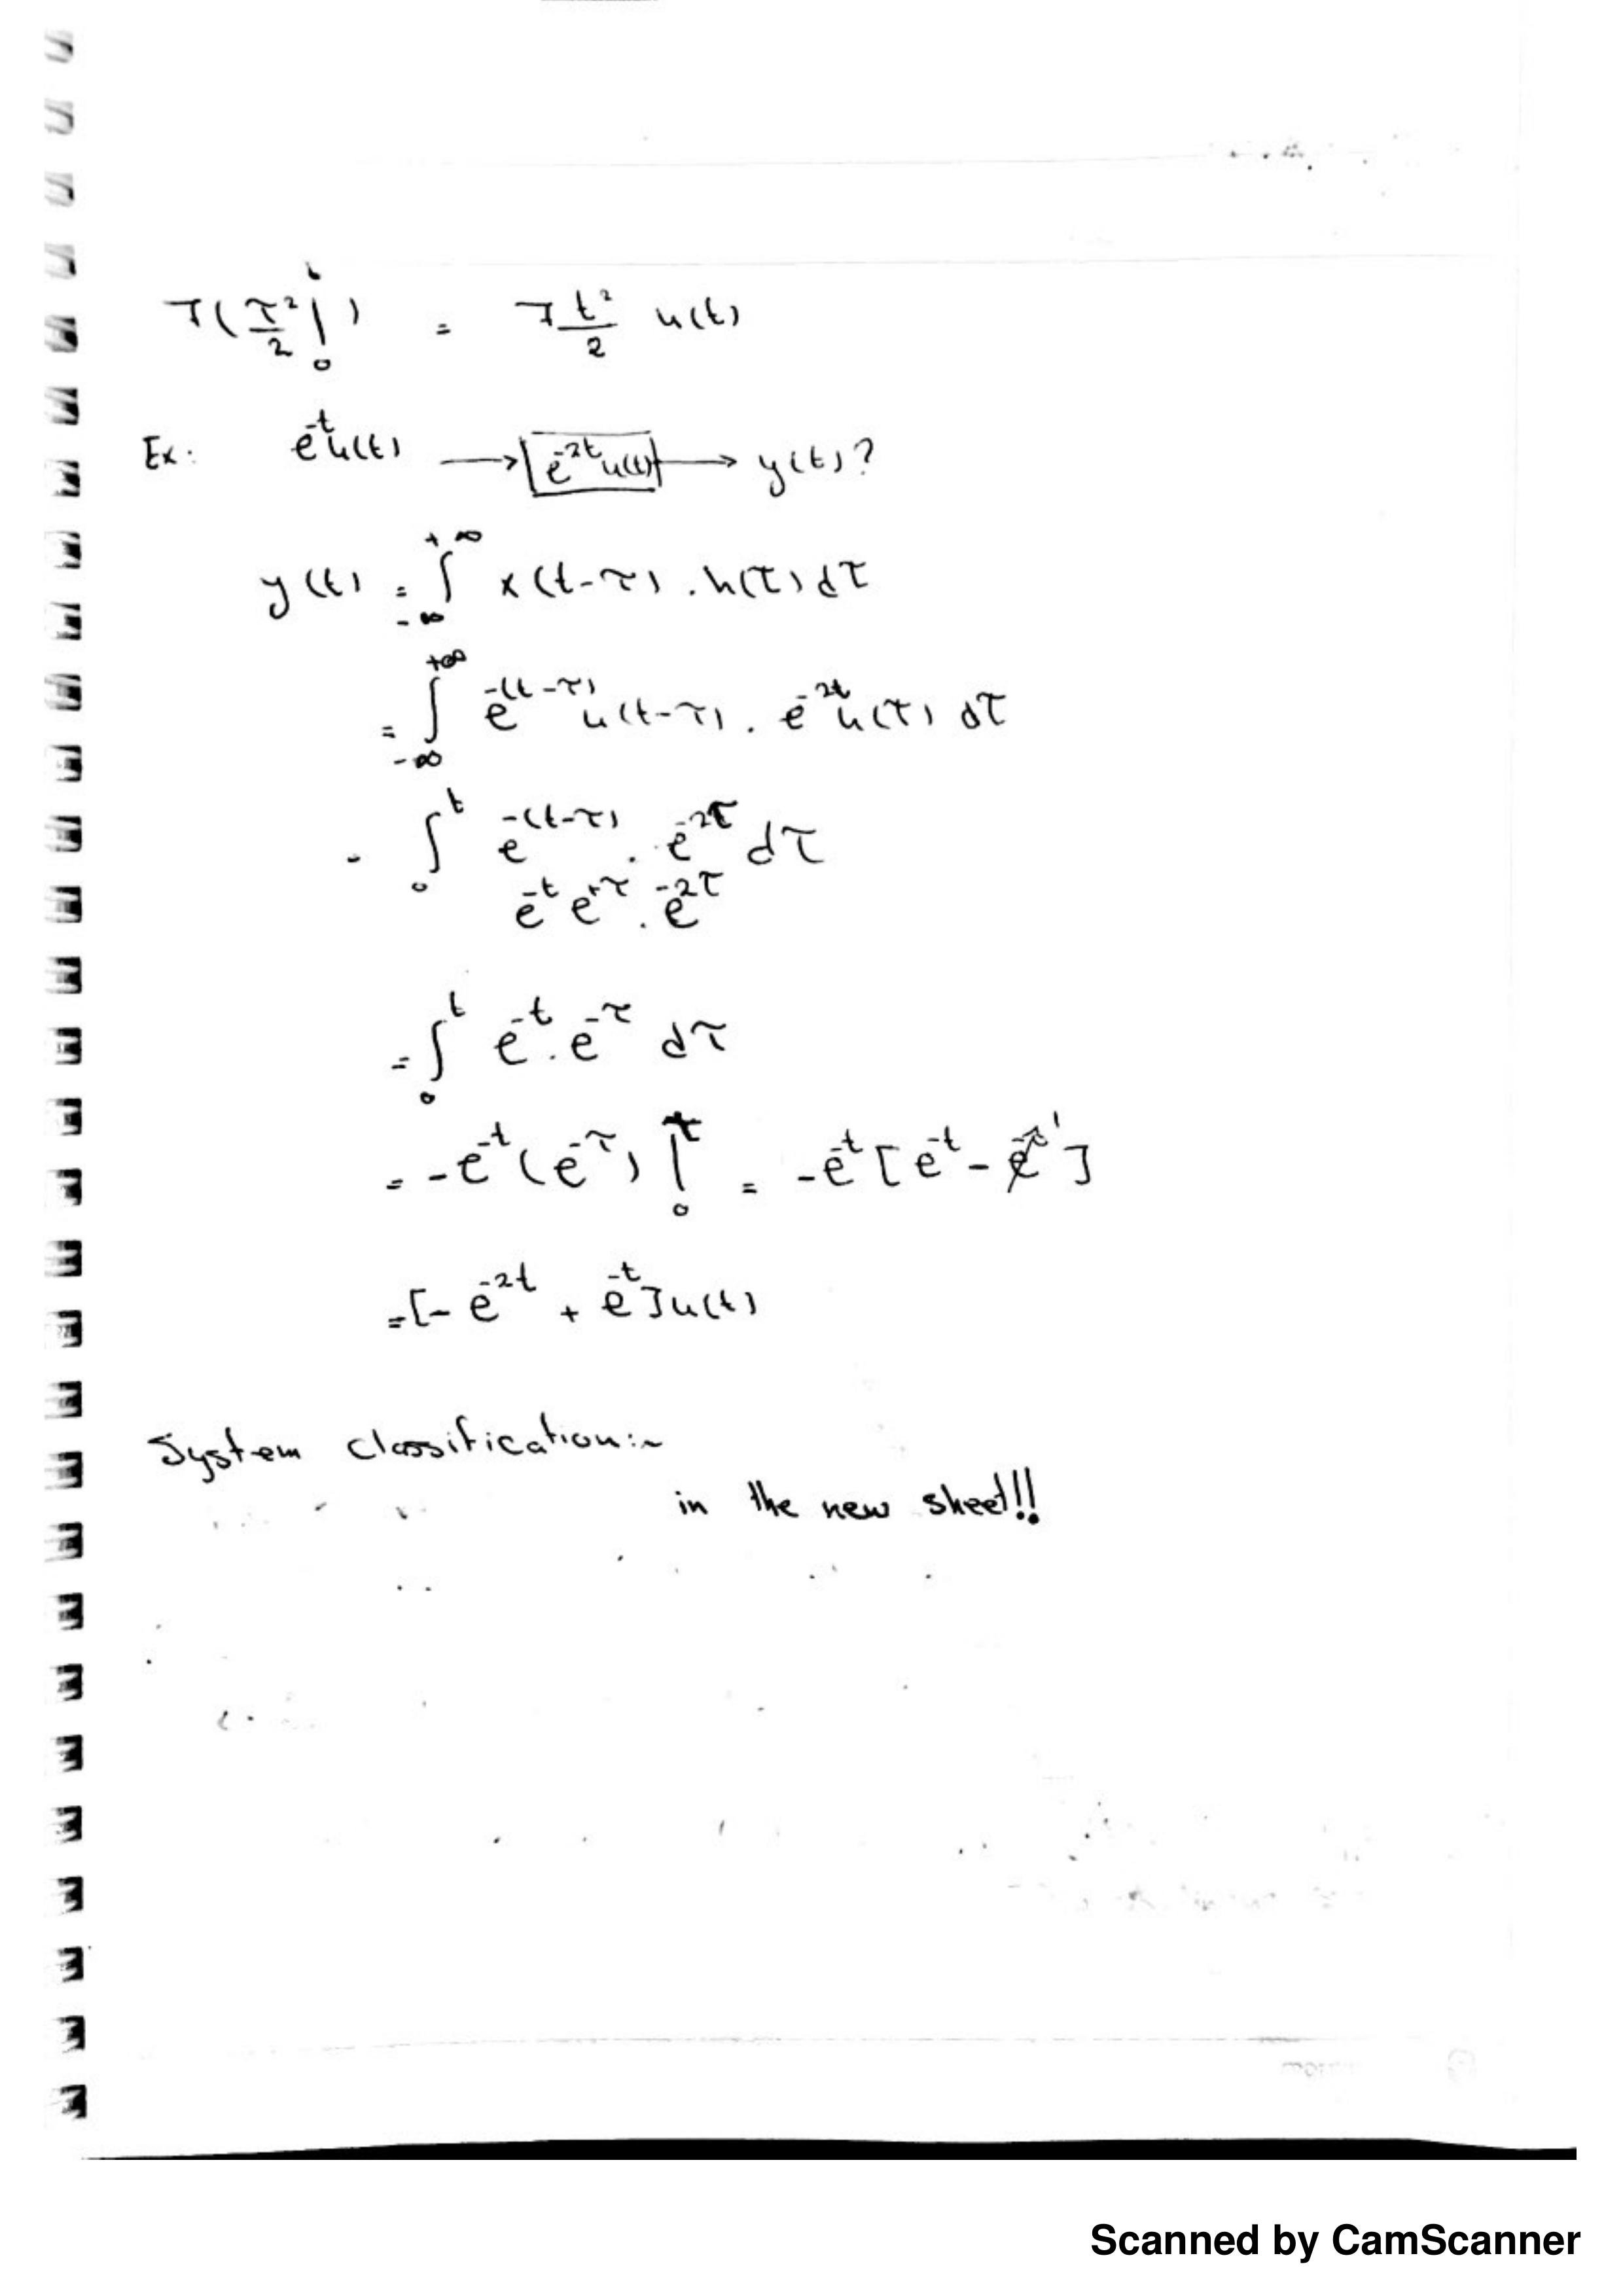 7(τ²/2 |₀ᵗ) = 7 t²/2 u(t)
Ex: e^-t u(t) → [e^-2t u(t)] → y(t)?
y(t) = ∫_{-∞}^{+∞} x(t-τ) . h(τ) dτ
= ∫_{-∞}^{+∞} e^-(t-τ) u(t-τ) . e^-2t u(τ) dτ
= ∫₀ᵗ e^-(t-τ) . e^-2τ dτ
e^-t e^+τ . e^-2τ
= ∫₀ᵗ e^-t . e^-τ dτ
= -e^-t (e^-τ) |₀ᵗ = -e^-t [e^-t - 1]
= [- e^-2t + e^-t] u(t)
System classification:~
in the new sheet!!
Scanned by CamScanner